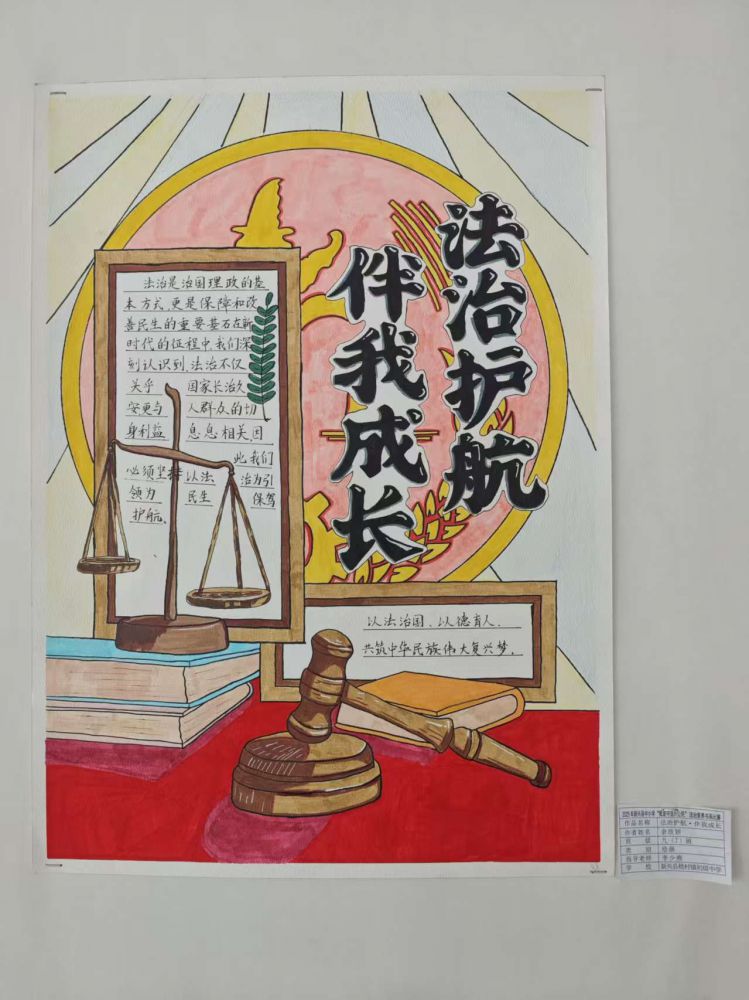 法治护航
伴我成长
法治是治国理政的基
本方式,更是保障和改
善民生的重要基石在新
时代的征程中,我们深
刻认识到,法治不仅
关乎 国家长治久
安更与 人群众的切
身利益 息息相关因
此我们
必须坚持以法 治为引
领为 民生 保驾
护航、
以法治国、以德育人、
共筑中华民族伟大复兴梦。
作品名称 法治护航·伴我成长
作者姓名
班级 九(7)班
类别 绘画
指导老师 李少燕
学校